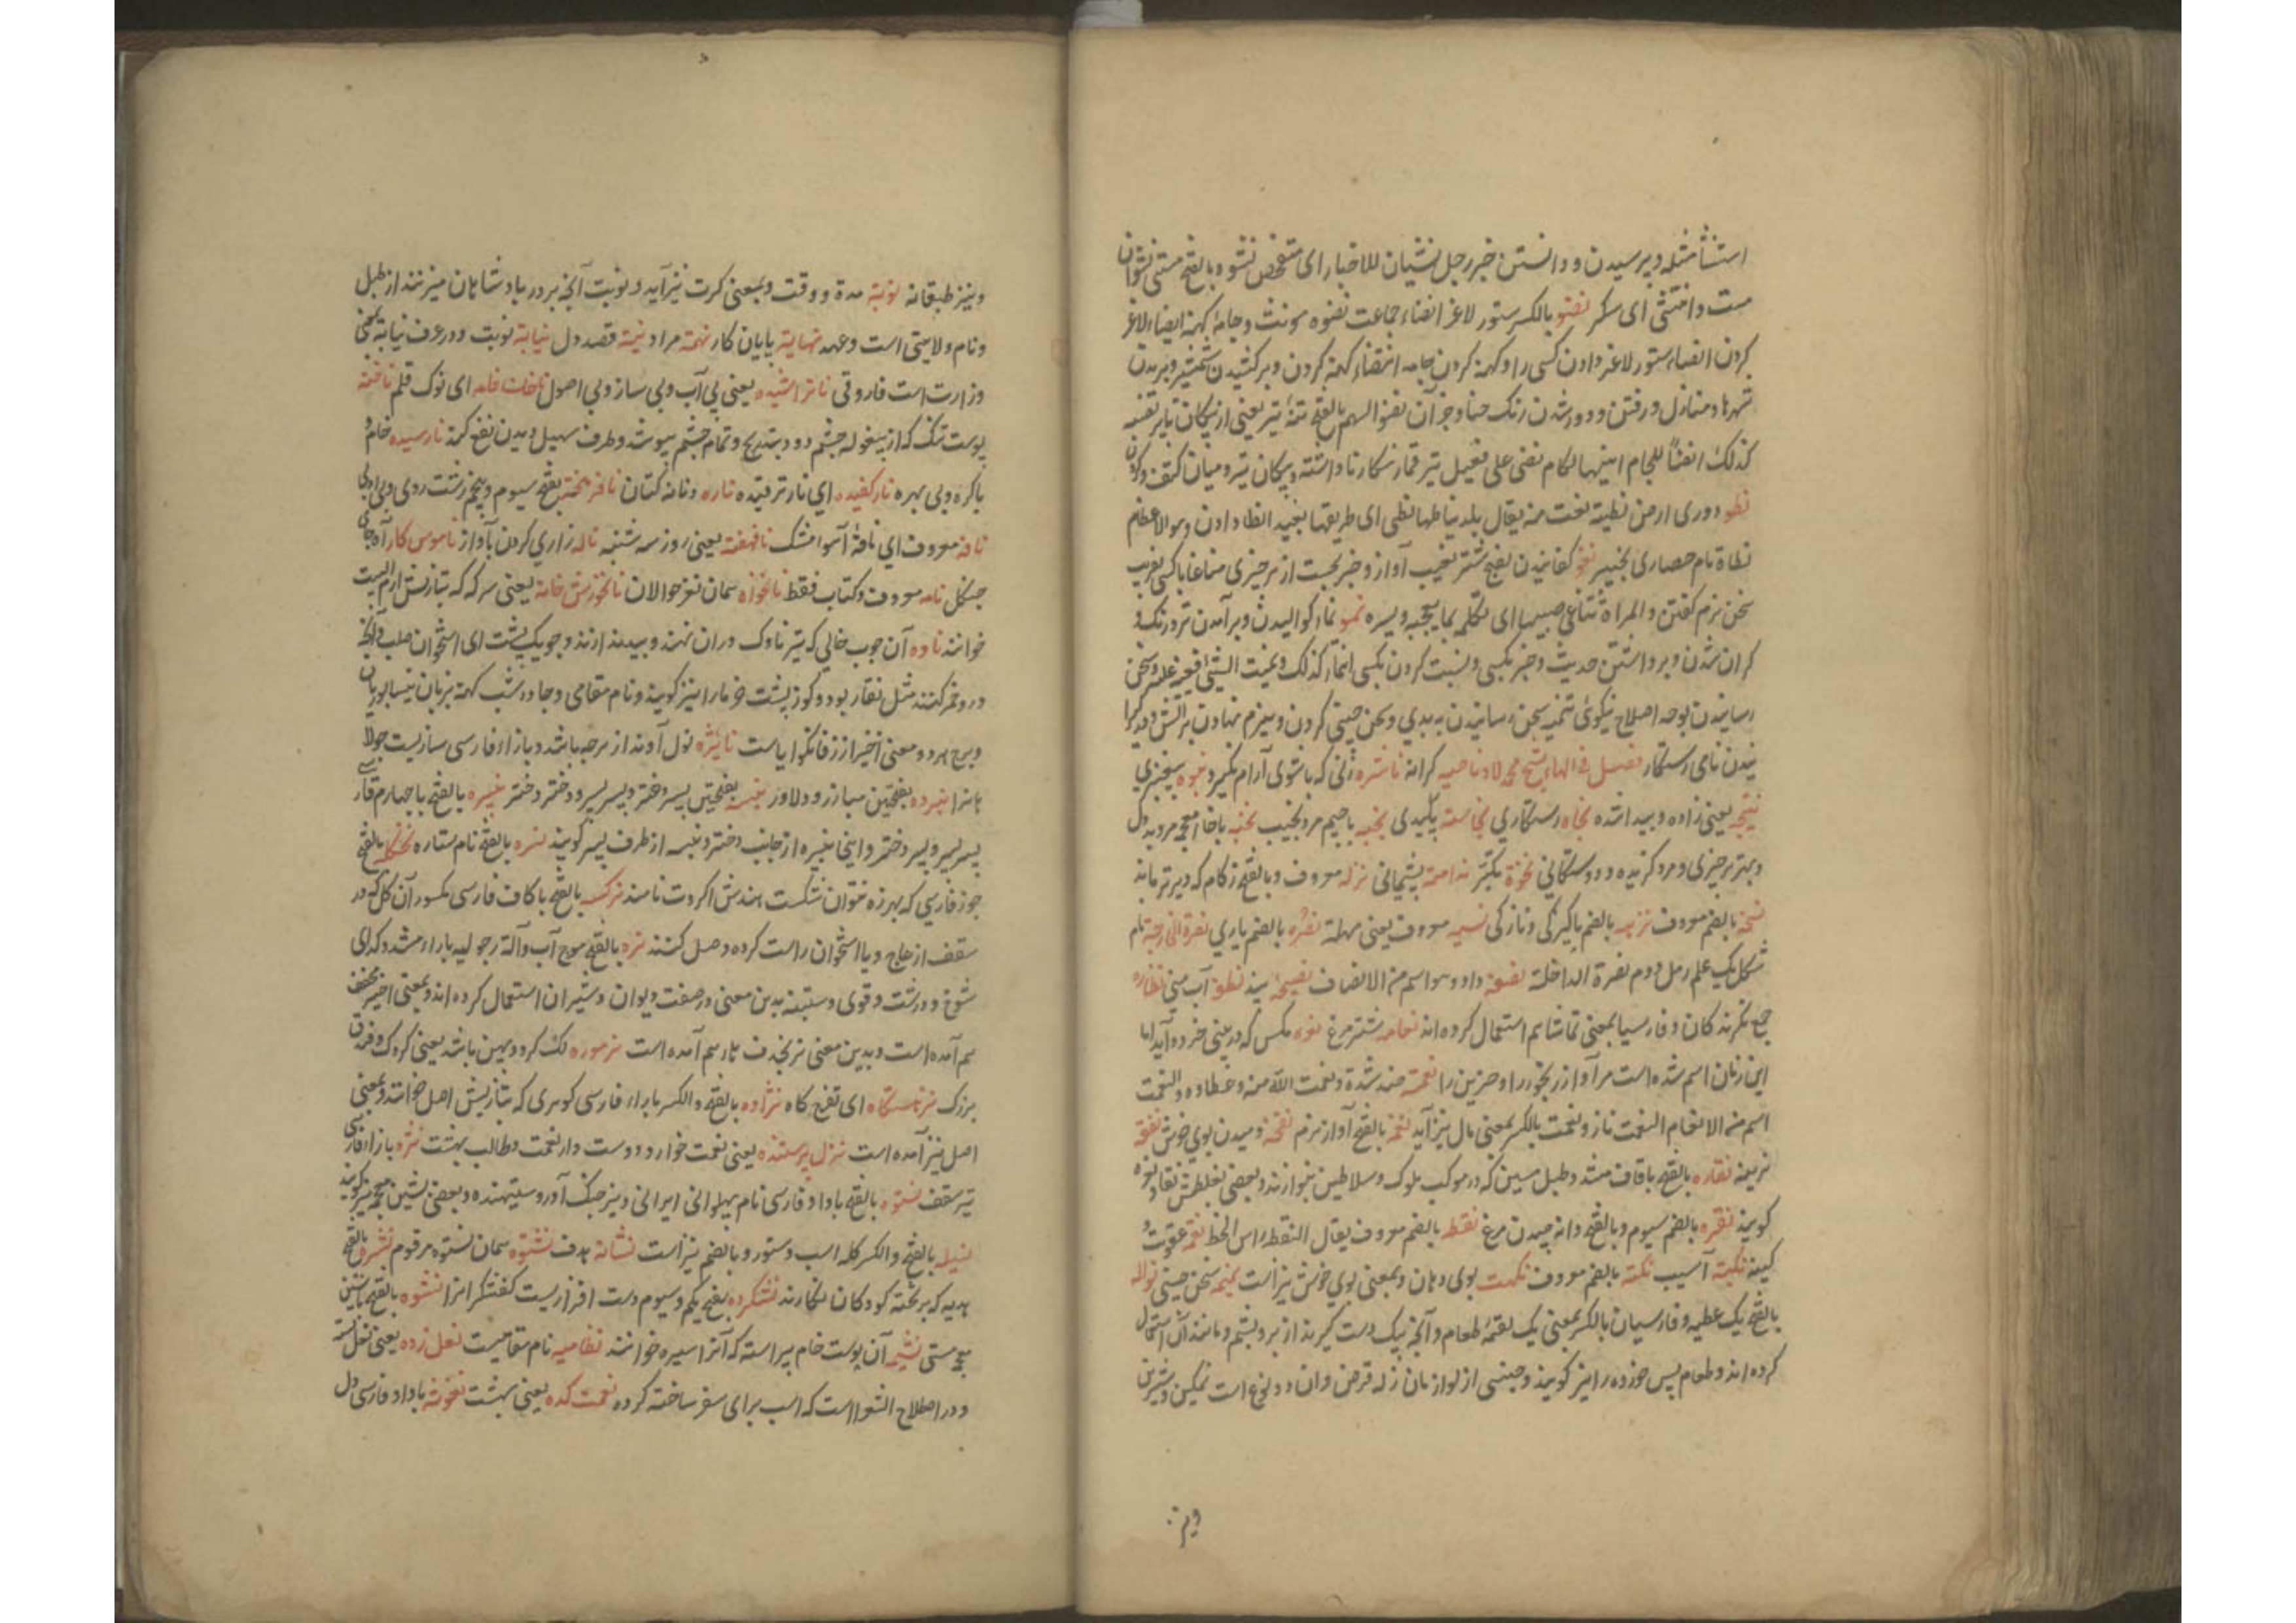 استنشا مثله وپرسیدن ودانستن خبر رجل نشیان للاخبار ای متفحص نشوه بالفتح مستی نشوان
مست وانتشی ای سکر نضو بالکسر ستور لاغر انضاء جماعت نضوه مونث وجامهٔ کهنه ایضاء لاغر
کردن انضاء ستور لاغر دادن کسی را وکهنه کردن جامه انتضاء کهنه کردن وبرکشیدن شمشیر وبریدن
شهرها ومنازل ورفتن ودور شدن رنک حنا وجز آن نضو السهم بالفتح تنهٔ تیر یعنی ازپیکان تا پر
کذلک انضاً للجام اینهها لکام نضی علی فعیل تیر قمار بکار نا داشته وپیکان تیر ومیان کتف وکردن
نطو دوری ارض نطیة نعت منه یقال بلد نیاطها نطی ای طریقها بعید انطا دادن وهو الاعطاء
نطاة نام حصاری بخیبر نغو
سخن نرم کفتن والمراة تناغی صبیها ای تکلمه بما یعجبه ویسره نمو نماء کوالیدن وبرآمدن نرخ ورنک و
کران شدن وبرداشتن حدیث وخبر بکسی ونسبت کردن بکسی انماء کذلک ونمیت الشیٔ
رسانیدن بوجه اصلاح نیکوئی تنمیه سخن رسانیدن به بدی وسخن چینی کردن وهیزم نهادن بر آتش
فصل فی الهاء ناصیه کرانه ناشزه زنی که باشوی آرام نکیرد
نتیجه یعنی زاده وپیدا شده نجاه رستکاری نجاسته پلیدی نجبه باجیم مرد نجیب نخبه باخاء معجمه مرد بددل
وبهتر هرچیزی ومرد کزیده نخوة تکبر ندامه پشیمانی نزله معروف وبالفتح زکام که دیر تر ماند
نسخه بالضم معروف نزهه بالضم پاکیزکی ونازکی نسیه معروف یعنی مهلة نصرة بالضم یاری نصرة الخارجه نام
شکل یک علم رمل دوم نصرة الداخلة نصفه داد وهو اسم من الانصاف نصیحه پند نطفه آب منی نظاره
جمع نکرندکان وفارسیا بمعنی تماشا هم استعمال کرده اند نعامه شتر مرغ نعره مکس که در بینی خر ده آید اما
این زمان اسم شده است مر آواز رنجور را وحزین را نعمة ضد شدة ونعمت الله منه وعطاوه والنعمت
اسم من الانعام النعمت ناز ونعمت بالکسر بمعنی مال نیز آید نغمه بالفتح آواز نرم نفحه دمیدن بوی خوش نفقه
هزینه نقاره بالفتح باقاف مشدد طبل مسین که در موکب ملوک وسلاطین بنوازند وبعضی بغلطش
کویند نقره بالضم سیوم وبالفتح دانه چیدن مرغ نقطه بالضم معروف یقال النقط راس الخط نقمه عقوبت و
کینه نکبة آسیب نکته بالضم معروف نکهت بوی دهان وبمعنی بوی خوش نیز است نمیمه سخن چینی نواله
بالفتح یک عطیه وفارسیان بالکسر بمعنی یک لقمهٔ طعام وآنچه بیک دست کیرند از بر وپشم ومانند آن استعمال
کرده اند وطعام پس خورده را نیز کویند وجنسی از لوازمات نزله قرص وآن دو نوع است نمکین وشیرین
ونیز
ونیز طبقانه نوبة مدة ووقت وبمعنی کرت نیز آید ونوبت آنچه بر در پادشاهان میزنند از طبل
ونام ولایتی است وعهد نهایة پایان کار نهمة مراد نیة قصد دل نیابة نوبت ودر عرف نیابة بمعنی
وزارت است فاروقی ناتراشیده یعنی بی آب وبی ساز وبی اصول ناخن خامه ای نوک قلم ناخنه
پوست تنک که از بیغوله چشم رود بتدریج وتمام چشم بپوشد وطرف سهیل دیدن نفع کند نارسیده خام و
باکره وبی بهره نارکفیده ای نار ترقیده ناره زبانه کپان نافرهخته بفتح سیوم وپنجم زشت روی وبی ادب
نافه معروف ای نافهٔ آهو مشک ناقهفته یعنی روز سه شنبه ناله زاری کردن بآواز ناموس کار
جنکل نامه معروف وکتاب فقط نانخواه همان نغز خوالان نانخورش خانه یعنی سرکه که بتازیش
خوانند ناوه آن چوب خالی که تیر ناوک دران نهند وبیندازند وجویک پشت ای استخوان صلب وآنچه
درو خمیر کنند مثل نقار بود وکوز پشت خرما را نیز کویند ونام مقامی وچادر شب کهنه بزبان نیسابوریان
وبرج هردو معنی اخیر از زفانکویاست نایژه لول آوند از هرچه باشد وبازاء فارسی سازیست جولا
هانرا نبرده بفتحتین مبارز ودلاور نبسه بفتحتین پسر دختر وپسر پسر ودختر دختر نبیره بالفتح باچهارم
پسر پسر وپسر دختر واینجا نبیره از جانب دختر ونبسه از طرف پسر کویند نثره بالفتح نام ستاره نخکله بالفتح
جوز فارسی که بهرزه نتوان شکست هندش اکروت نامند نرکسه بالفتح باکاف فارسی مکسور آن کل که در
سقف از عاج ویا استخوان راست کرده وصل کنند نره بالفتح موج آب وآلة رجولیه باراء مشدد کدای
شوخ ودرشت وقوی وستنبه بدین معنی در صفت دیوان وشیران استعمال کرده اند وبمعنی اخیر مخفف
هم آمده است وبدین معنی نر بحذف هاء هم آمده است نرموره لک کرد وپهن باشد یعنی کردک وفرق
بزرک نزهتکاه ای تفرج کاه نژاده بالفتح والکسر بازاء فارسی کوهری که بتازیش اصل خوانند وبمعنی
اصل نیز آمده است نزل پرستنده یعنی نعمت خوار ودوست دار نعمت وطالب بهشت نژه بازاء فارسی
تیر سقف نستوه بالفتح باواو فارسی نام پهلوانی ایرانی ونیز جنک آور وستیهنده وبعضی بشین معجمه نیز کویند
نسیله بالفتح والکسر کله اسب وستور وبالضم نیز است نشانه هدف نشتوه همان نستوه مرقوم نشره بالفتح
هدیه که بر تخته کودکان نکارند نشکرده بفتح یکم وسیوم دست افزاریست کفشکرانرا نشوه بالفتح باشین
معجمه مستی نشیمه آن پوست خام پیراسته که آنرا سیره خوانند نظامیه نام مقامیست نعل زده یعنی نعل بسته
ودر اصطلاح الشعرا است که اسب برای سفر ساخته کرده نعمت کده یعنی بهشت نغوشه باواو فارسی دل